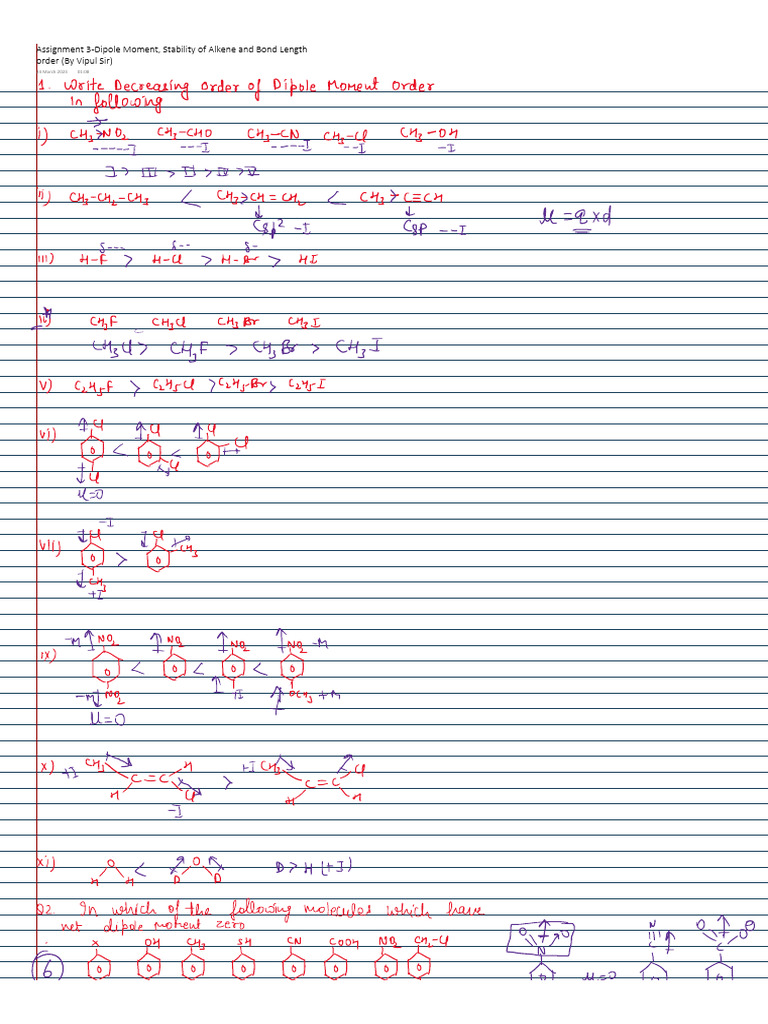 Assignment 3-Dipole Moment, Stability of Alkene and Bond Length
order (By Vipul Sir)
1. Write Decreasing order of Dipole Moment order
In following
i) CH3 NO2 CH3-CHO CH3-CN CH3-Cl CH3-OH
-----I ---I ----I --I -I
I > III > II > IV > V
ii) CH3-CH2-CH3 < CH3 CH=CH2 < CH3 C≡CH
Csp2 -I Csp --I μ = q x d
δ--- δ-- δ-
iii) H-F > H-Cl > H-Br > HI
iv) CH3F CH3Cl CH3Br CH3I
CH3Cl > CH3F > CH3Br > CH3I
v) C2H5F > C2H5Cl > C2H5-Br > C2H5I
Cl Cl Cl
vi) < < Cl
Cl Cl
μ=0
-I
Cl Cl
vii) > CH3
CH3
+I
-M NO2 NO2 NO2 NO2 -M
ix) < < <
-M NO2 I OCH3 +M
μ=0
x) +I CH3 H > +I CH3 Cl
C=C C=C
H Cl H H
-I
xi) O < O D > H (+I)
H H D D
Q2. In which of the following molecules which have
net dipole moment zero
X OH CH3 SH CN COOH NO2 CH2-Cl O N O N C O O
6 μ=0